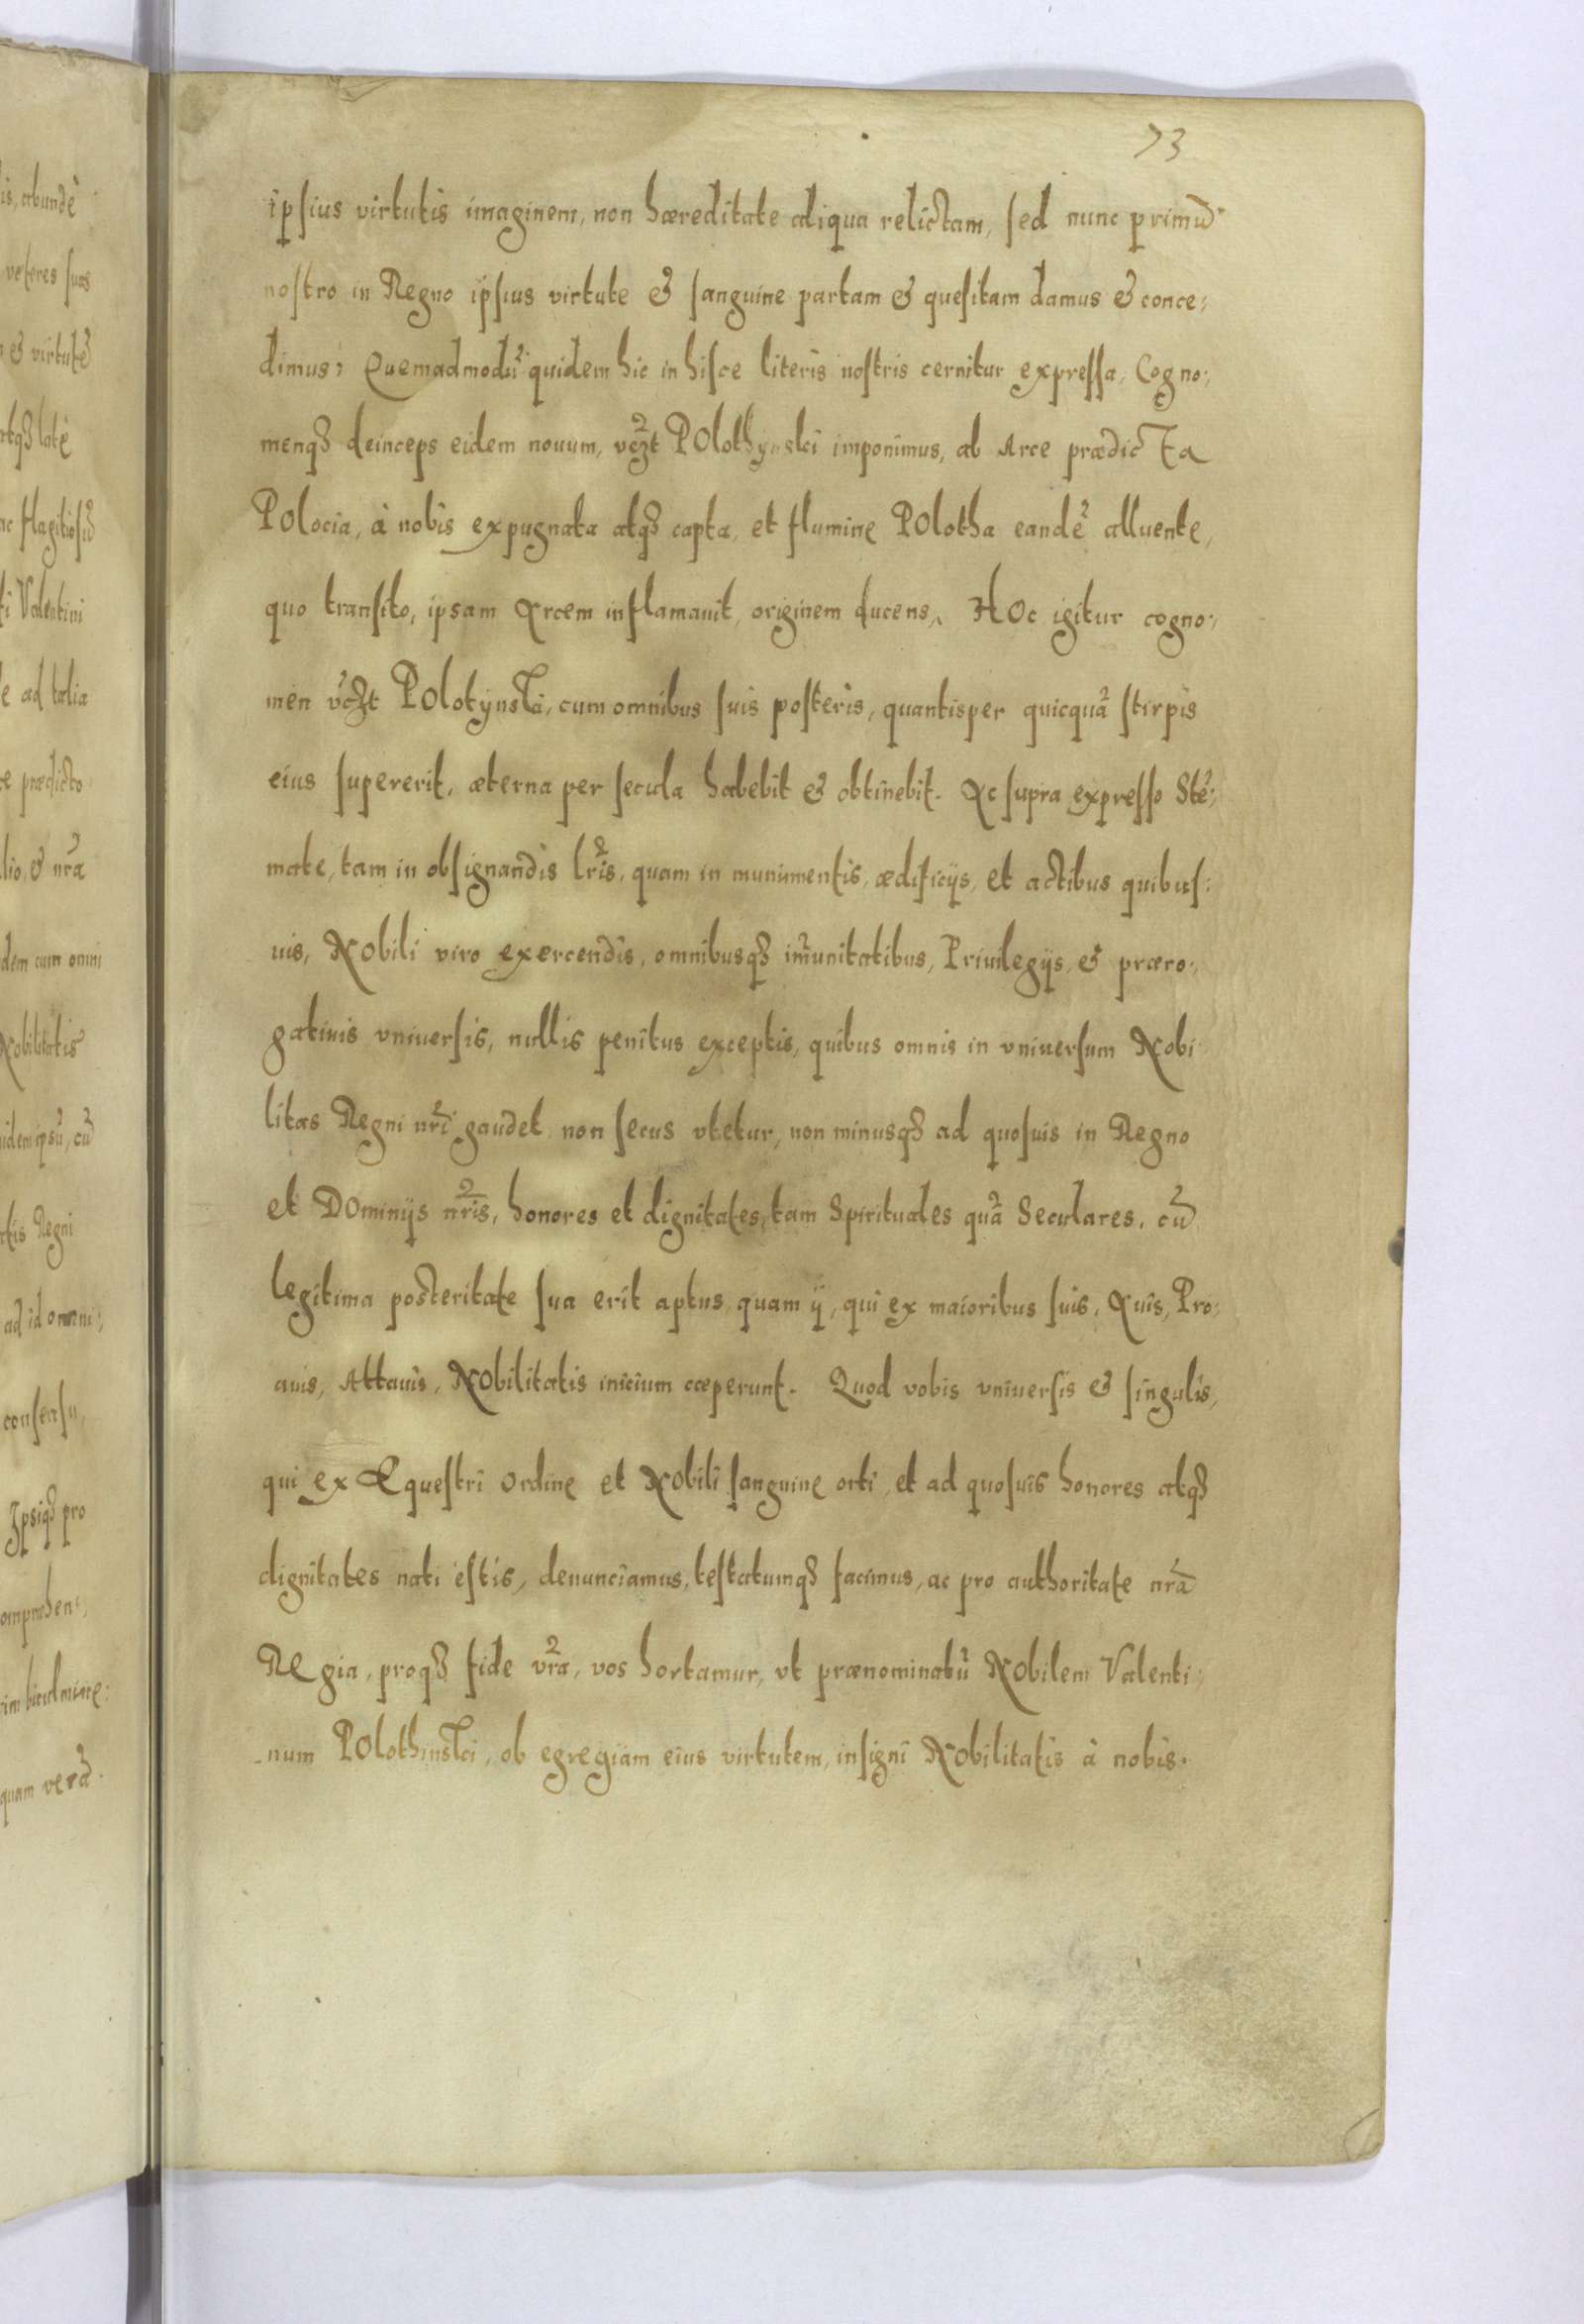 73
ipsius virtutis imaginem, non hæreditate aliqua relictam, sed nunc primũ
nostro in Regno ipsius virtute & sanguine partam & quesitam damus & conce:
dimus; Quemadmodũ quidem hic in hisce literis nostris cernitur expressa, Cogno:
menqʒ deinceps eidem nouum, vczt Polothynski imponimus, ab Arce prædicta
Polocia, à nobis expugnata atqʒ capta, et flumine Polotha eandẽ alluente,
quo transito, ipsam Arcem inflamauit, originem ducens, Hoc igitur cogno:
men vczt Polotynski, cum omnibus suis posteris, quantisper quicquã stirpis
eius supererit, æterna per secula habebit & obtinebit. Ac supra expresso Stẽ:
mate, tam in obsignandis lr̃is, quam in munimentis, ædificijs, et actibus quibus:
uis, Nobili viro exercendis, omnibusqʒ im̃unitatibus, Priuilegijs, & præro:
gatiuis vniuersis, nullis penitus exceptis, quibus omnis in vniuersum Nobi
litas Regni nr̃i gaudet non secus vtetur, non minusqʒ ad quosuis in Regno
et Dominijs nr̃is, honores et dignitates, tam Spirituales quã Seculares, cũ
legitima posteritate sua erit aptus quam ij, qui ex maioribus suis, Auis, Pro:
auis, Attauis, Nobilitatis inicium cæperunt. Quod vobis vniuersis & singulis,
qui ex Equestri ordine et Nobili sanguine orti, et ad quosuis honores atqʒ
dignitates nati estis, denunciamus, testatumqʒ facimus, ac pro authoritate nr̃a
Regia, proqʒ fide vr̃a, vos hortamur, vt prænominatũ Nobilem Valenti:
num Polothinski, ob egregiam eius virtutem, insigni Nobilitatis à nobis.